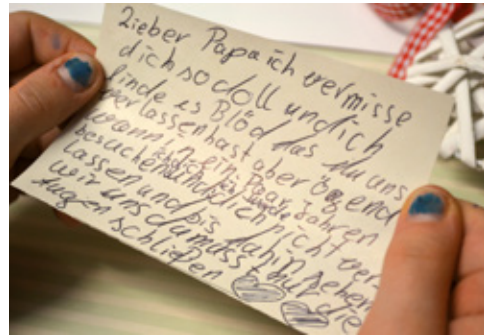 Lieber Papa ich vermisse
dich so doll und ich
finde es Blöd das du uns
verlassen hast aber
wann in ein Paar Jahren
ich dich
besuchen und dich nicht ver
lassen und bis dahin sehen
wir uns du musst nur die
Augen schließen